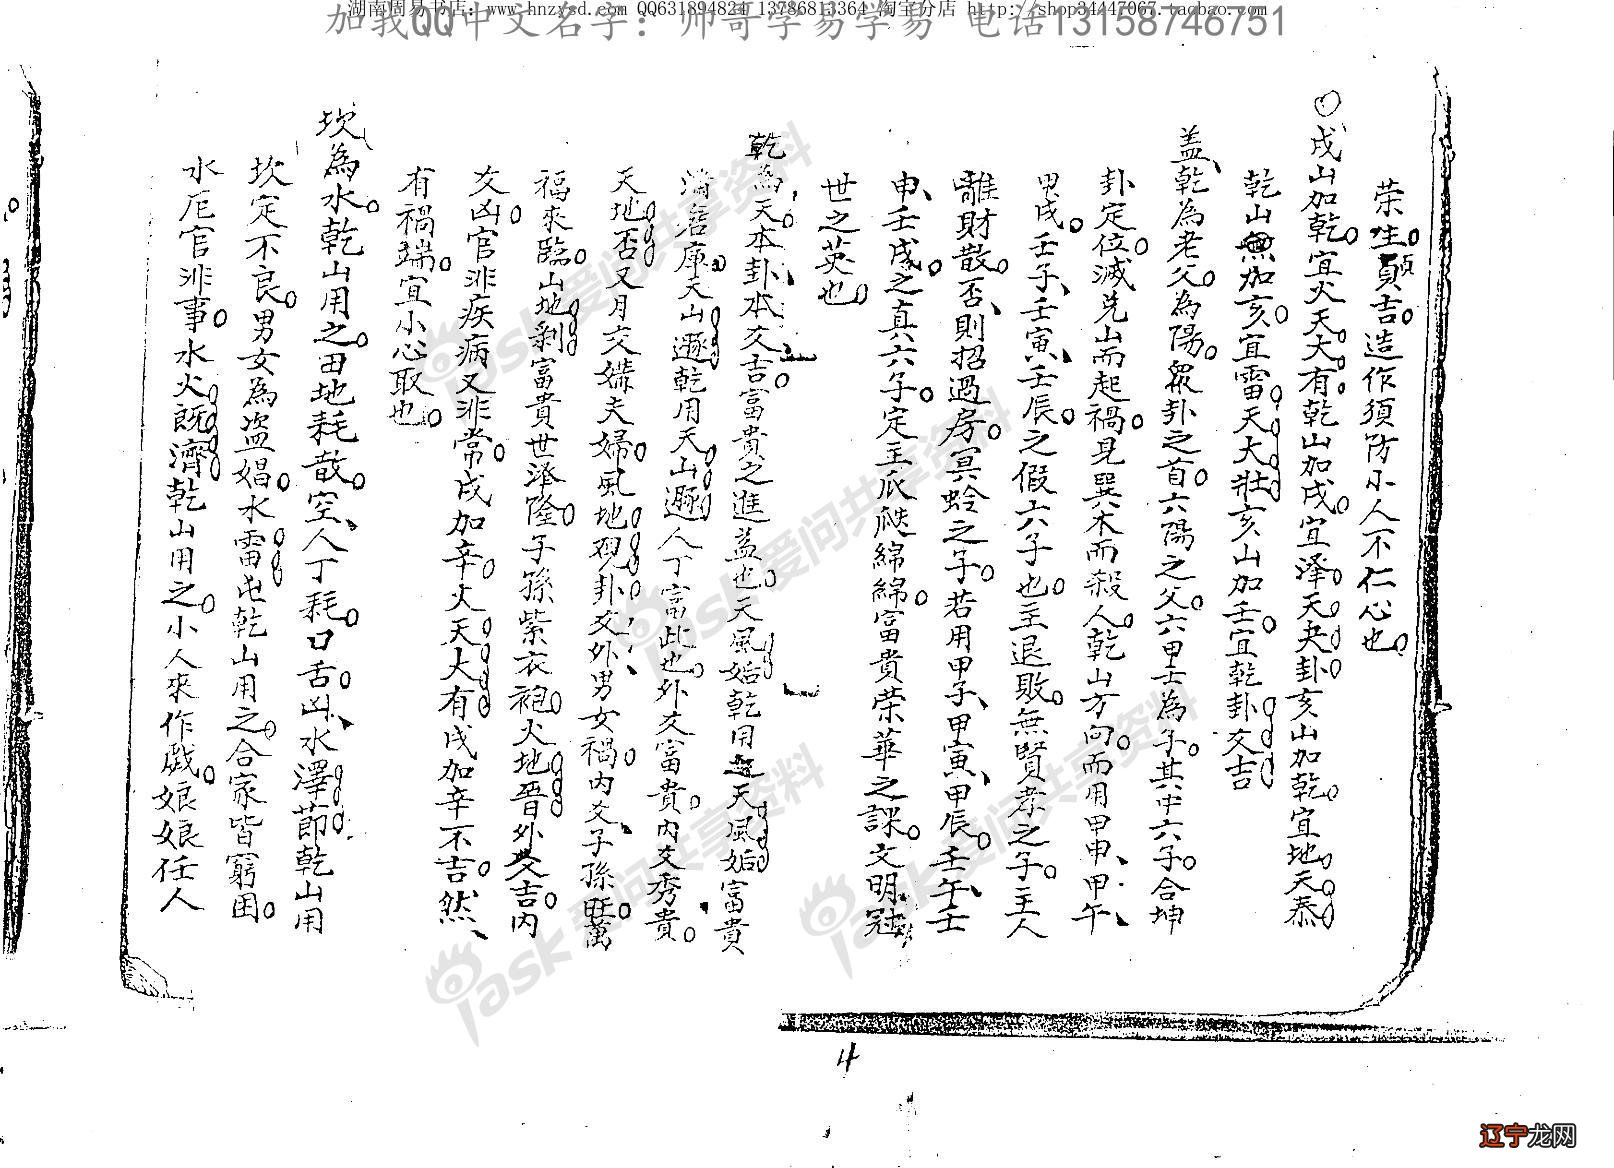 湖南周易书店: www.hnzysd.com QQ631894824 13786813364 淘宝分店 http://shop34447067.taobao.com
加我QQ中文名字：帅哥学易学易 电话13158746751
荣生貞吉。造作須防小人不仁心也。
○戍山加乾。宜火天大有。乾山加戍。宜泽天夬卦。亥山加乾。宜地天泰。
乾山加亥。宜雷天大壮。亥山加壬。宜乾卦爻吉
盖、乾為老父。為陽。眾卦之首。六陽之父。六甲壬為子。其中六子。合坤
卦定位。滅兑山而起禍。見巽木而殺人。乾山方向。而用甲申、甲午、
甲戍。壬子、壬寅、壬辰。之假六子也。主退敗。無賢孝之子。主人
離財散。否、則招過房。冥蛉之子。若用甲子、甲寅、甲辰。壬午、壬
申、壬戍。之真六子。定主瓜瓞綿綿。富貴荣華之課。文明冠
世之英也。
乾為天。本卦、本爻吉。富貴之進益也。天風姤乾用天風姤富貴
滿倉庫。天山遯乾用天山遯人丁富此也。外爻富貴。内爻秀貴。
天地否又月交媾夫婦。風地观卦爻外男女禍。内爻、子孫旺萬
福來臨。山地剝富貴世澄隆。子孫紫衣袍。火地晋外爻吉。内
爻凶。官非疾病又非常。戍加辛。火天大有。戍加辛不吉。然、
有禍端。宜小心取也。
坎為水。乾山用之。田地耗散空、人丁耗。口舌凶、水澤節。乾山用
坎定不良。男女為盜娼。水雷屯乾山用之。合家皆窮困。
水厄官非事。水火既濟乾山用之。小人來作戲。娘娘任人
4
ask爱问共享资料
ask爱问共享资料
ask爱问共享资料
ask爱问共享资料
ask爱问共享资料
辽宁龙网